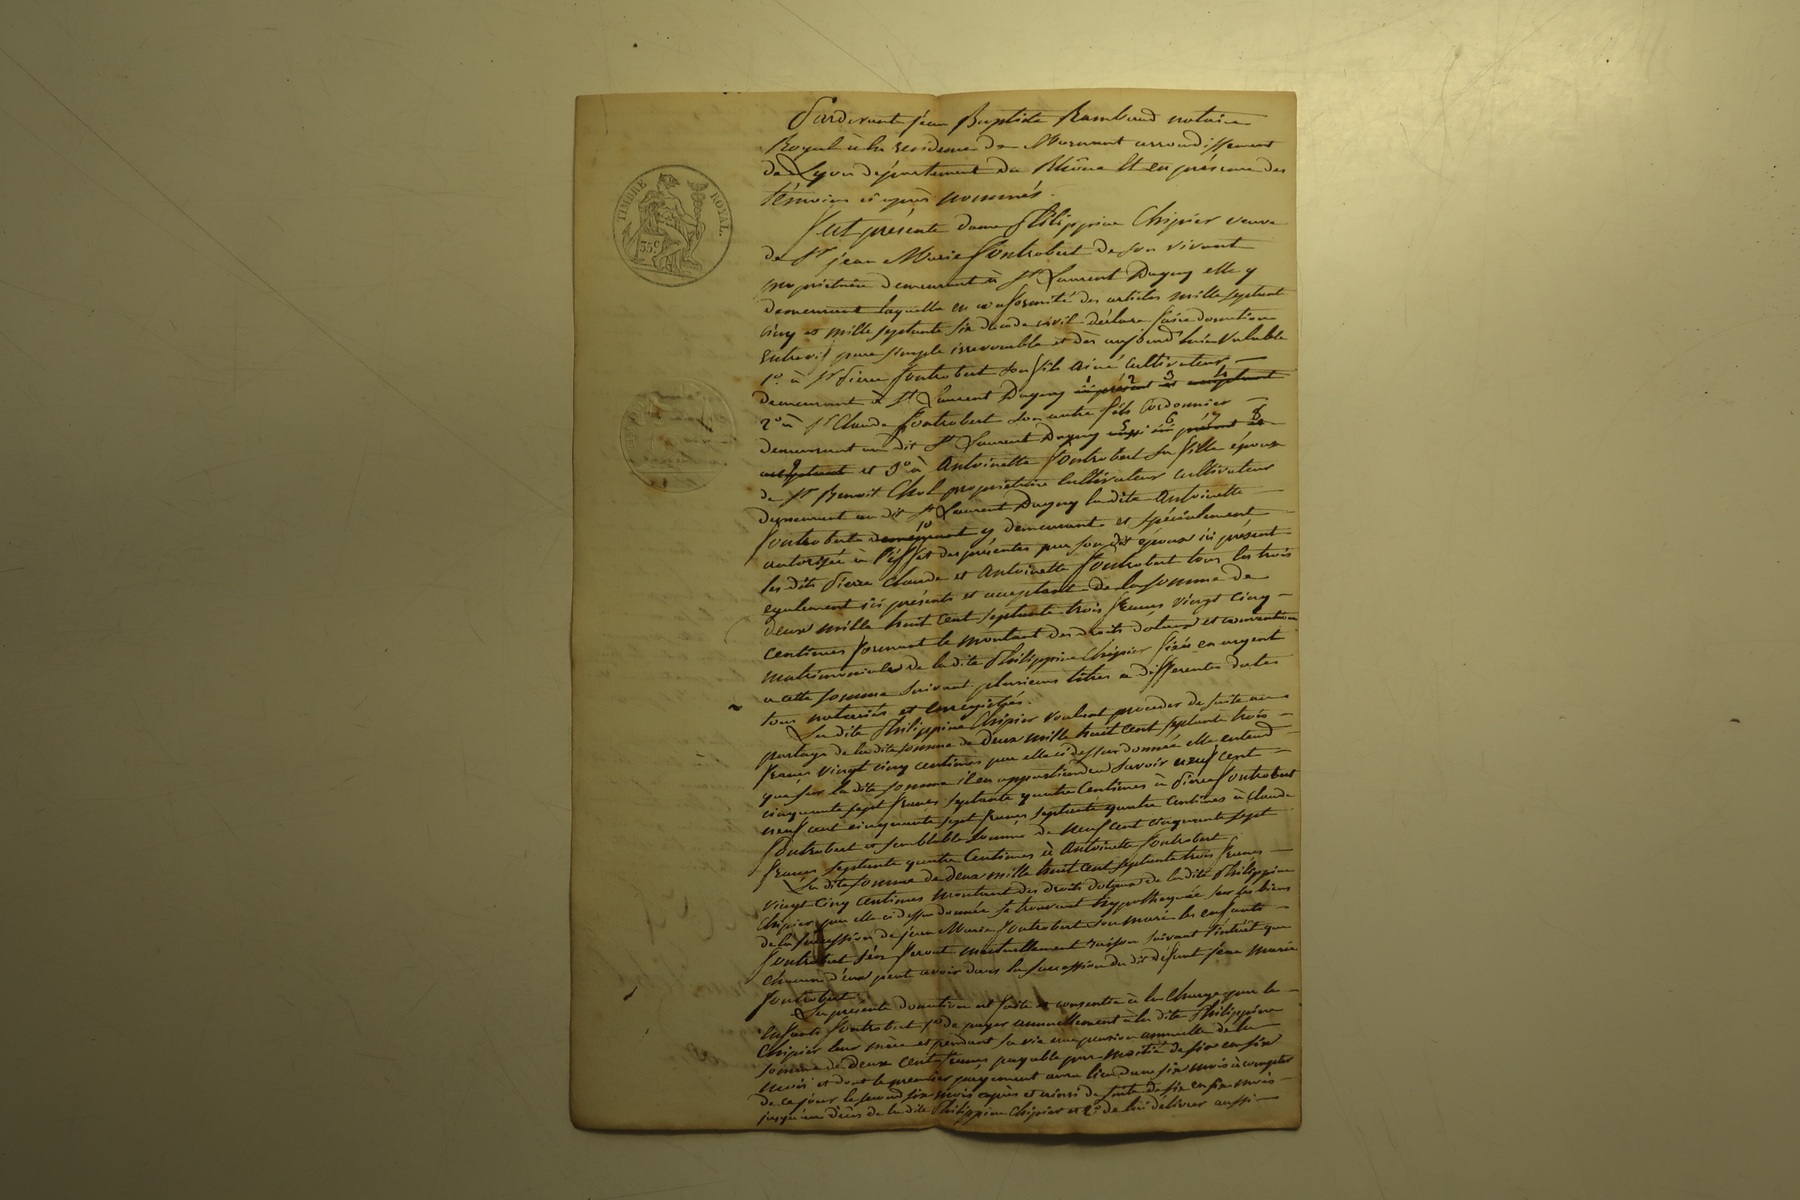 TIMBRE ROYAL.
35c
Pardevant jean Baptiste Rambaud notaire
Royal à la residence de Mornant arrondissement
de Lyon département du Rhône Et en présence des
témoins ci après nommés.
fut présente dame Philippine Chipier veuve
de Sr jean Marie Foutrobert de son vivant
propriétaire demeurant à St Laurent Dagny elle y
demeurant laquelle en conformité des articles mille septante
cinq et mille septante six du code civil déclare faire donation
Entrevif pure simple irrevocable et dès aujourd'huie Valable
1o. à Sr Pierre Foutrobert son fils ainé cultivateur
demeurant à St Laurent Dagny ici présent et acceptant
2o à Sr Claude Foutrobert son autre fils Cordonnier
demeurant au dit St Laurent Dagny aussi ici présent et
acceptant et 3o à Antoinette Foutrobert sa fille épouse
de Sr Benoit Chol propriétaire cultivateur cultivateur
demeurant au dit St Laurent Dagny la dite Antoinette
Foutroberte demeurant y demeurante et spécialement
autorisée à l'effet des présentes par son dit époux ici présent
les dits Pierre Claude et Antoinette Foutrobert tous les trois
egalement ici présents et acceptant de la somme de
deux mille huit cent septante trois francs vingt cinq
centimes formant le montant des droits dotaux et convention
matrimoniales de la dite Philippine Chipier fixés en argent
a cette somme suivant plusieurs titres a differentes dates
tous notariés et enregistrés.
La dite Philippine Chipier voulant proceder de suite au
partage de la dite somme de deux mille huit cent septante trois
francs vingt cinq centimes par elle ci dessus donnée elle entend
que sur la dite somme il en appartiendra savoir neuf cent
cinquante sept francs septante quatre Centimes à Pierre Foutrobert
neuf cent cinquante sept francs septante quatre centimes à Claude
Foutrobert et semblable somme de neuf cent cinquante sept
francs septante quatre Centimes à Antoinette Foutrobert.
La dite somme de deux mille huit cent septante trois francs
vingt Cinq centimes montant des droits dotaux de la dite Philippine
Chipier par elle ci dessus donnée se trouvant hypothequée sur les biens
de la succession de jean Marie Foutrobert son mari les enfants
Foutrobert s'en feront mutuellement raison suivant l'intérêt que
chacun d'eux peut avoir dans la succession du dit défunt jean Marie
Foutrobert.
La presente donation est faite et consentie à la Charge par les
Enfants Foutrobert 1o de payer annuellement à la dite Philippine
Chipier leur mère et pendant sa vie une pension annuelle de la
somme de deux Cents francs payable par moitié de six en six
mois et dont le premier payement aura lieu dans six mois à compter
de ce jour le second six mois après et ainsi de suite de six en six mois
jusqu'au décès de la dite Philippine Chipier et 2o de lui délivrer aussi